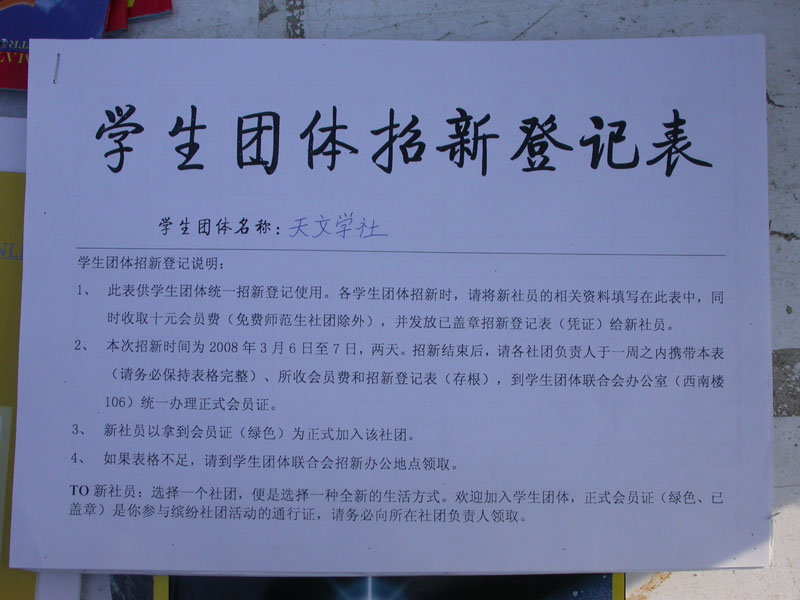 学生团体招新登记表
学生团体名称：天文学社
学生团体招新登记说明：
1、 此表供学生团体统一招新登记使用。各学生团体招新时，请将新社员的相关资料填写在此表中，同
时收取十元会员费（免费师范生社团除外），并发放已盖章招新登记表（凭证）给新社员。
2、 本次招新时间为 2008 年 3 月 6 日至 7 日，两天。招新结束后，请各社团负责人于一周之内携带本表
（请务必保持表格完整）、所收会员费和招新登记表（存根），到学生团体联合会办公室（西南楼
106）统一办理正式会员证。
3、 新社员以拿到会员证（绿色）为正式加入该社团。
4、 如果表格不足，请到学生团体联合会招新办公地点领取。
TO 新社员：选择一个社团，便是选择一种全新的生活方式。欢迎加入学生团体，正式会员证（绿色、已
盖章）是你参与缤纷社团活动的通行证，请务必向所在社团负责人领取。